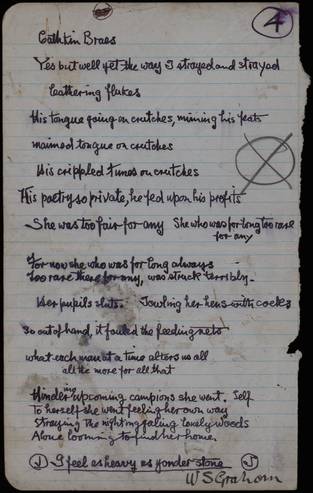 4
Cathkin Braes
Yes but well yet the way I strayed and strayed
Gathering flukes
His tongue going on crutches, miming his feats
maimed tongue on crutches
His crippled tunes on crutches
His poetry so private, he fed upon his profits
She was too fair for any She who was for long too rare
for any
For now she who was for long always
too rare there for any, was struck terribly.
Her pupils slits. Jowling her hens with cocks
so out of hand, it fouled the feeding nets
what each man at a time alters us all
all the more for all that
Hindering upcoming campions she went, Self
To herself she went feeling her own way
Straying the nightingaling lovely woods
Alone looming to find her home.
I feel as heavy as yonder stone
W S Graham